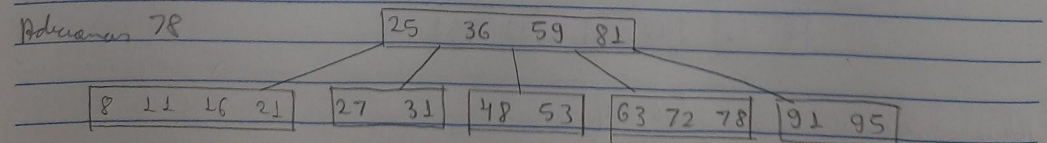 Adicionar 78 25 36 59 81
8 11 16 21 27 31 48 53 63 72 78 91 95